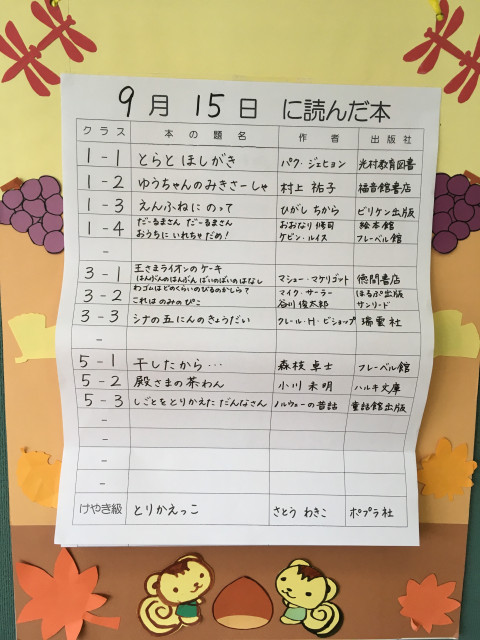 9月15日 に読んだ本
クラス 本の題名 作者 出版社
1-1 とらとほしがき パク・ジェヒョン 光村教育図書
1-2 ゆうちゃんのみきさーしゃ 村上祐子 福音館書店
1-3 えんふねにのって ひがしちから ビリケン出版
1-4 だーるまさん だーるまさん おおなり修司 絵本館
おうちに いれちゃだめ! ケビン・ルイス フレーベル館
-
3-1 王さまライオンのケーキ マシュー・マケリゴット 徳間書店
はんぶんのはんぶん ばいのばいのはなし
3-2 わゴムはどのくらいのびるのかしら? マイク・サーラー ほるぷ出版
これはのみのぴこ 谷川俊太郎 サンリード
3-3 シナの五にんのきょうだい クレール・H・ビショップ 瑞雲社
-
5-1 干したから… 森枝卓士 フレーベル館
5-2 殿さまの茶わん 小川未明 ハルキ文庫
5-3 しごとをとりかえただんなさん ノルウェーの昔話 童話館出版
-
-
-
-
けやき級 とりかえっこ さとう わきこ ポプラ社